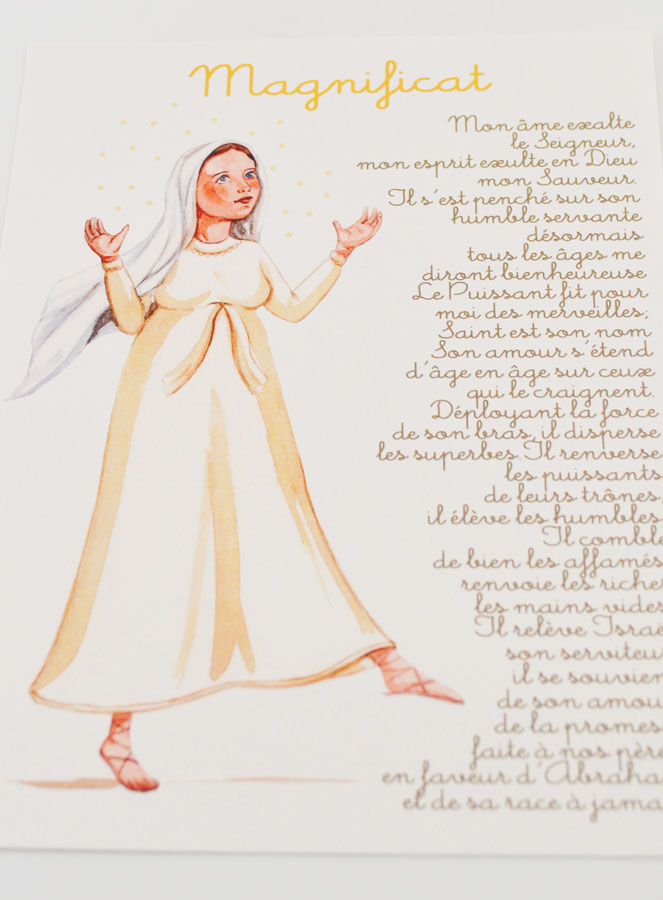 Magnificat
Mon âme exalte
le Seigneur,
mon esprit exulte en Dieu
mon Sauveur.
Il s'est penché sur son
humble servante
désormais
tous les âges me
diront bienheureuse
Le Puissant fit pour
moi des merveilles;
Saint est son nom
Son amour s'étend
d'âge en âge sur ceux
qui le craignent.
Déployant la force
de son bras, il disperse
les superbes. Il renverse
les puissants
de leurs trônes,
il élève les humbles
Il comble
de bien les affamés
renvoie les riche
les mains vides
Il relève Isra
son serviteu
il se souvien
de son amou
de la promes
faite à nos père
en faveur d'Abraha
et de sa race à jama